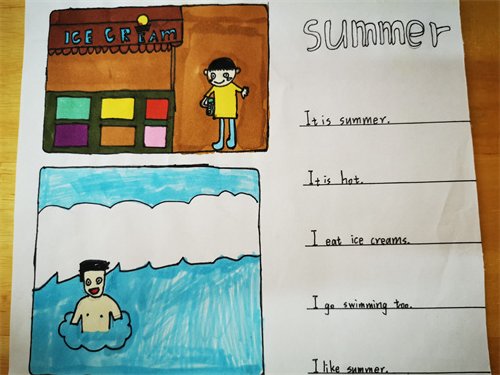 ICE CREAM
summer
It is summer.
It is hot.
I eat ice creams.
I go swimming too.
I like summer.